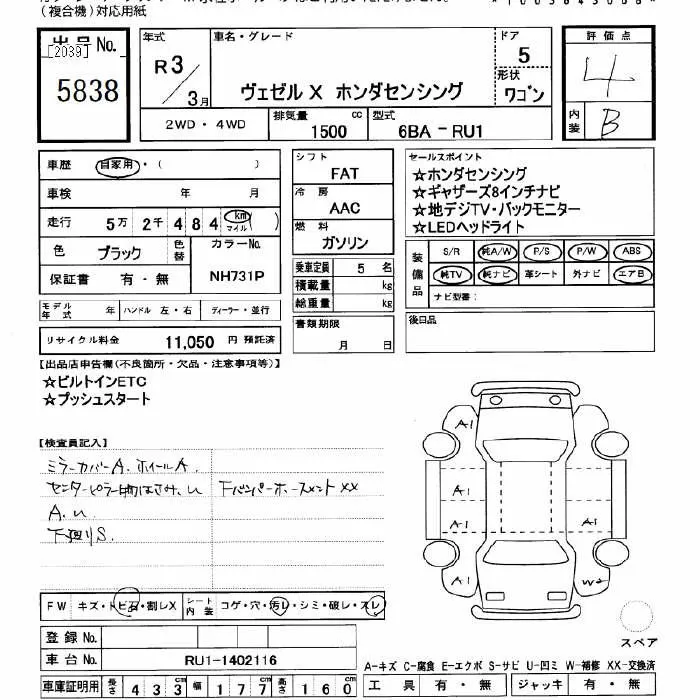 (複合機)対応用紙
出品 No.
[2039]
5838
年式
R3/3月
車名・グレード
ヴェゼル X ホンダセンシング
ドア
5
形状
ワゴン
評価点
4
内装
B
2WD・4WD
排気量
1500 cc
型式
6BA-RU1
車歴 自家用・( )
車検 年 月
走行 5万 2千 4 8 4 km マイル ( )
色 ブラック 色替
カラーNo.
NH731P
保証書 有・無
モデル年式 年 ハンドル 左・右 ディーラー・並行
リサイクル料金 11,050 円 預託済
シフト
FAT
冷房
AAC
燃料
ガソリン
乗車定員 5 名
積載量 kg
総重量 kg
書類期限
月 日
セールスポイント
☆ホンダセンシング
☆ギャザーズ8インチナビ
☆地デジTV・バックモニター
☆LEDヘッドライト
装備品
S/R 純A/W P/S P/W ABS
純TV 純ナビ 革シート 外ナビ エアB
ナビ型番:
後日品
【出品店申告欄(不良箇所・欠品・注意事項等)】
☆ビルトインETC
☆プッシュスタート
【検査員記入】
ミラーカバーA. ホイールA.
センターピラー物はさみ.U 下バンパーホースメント XX
A.U
下廻りS.
A1
A1
A1
A1
A1
A1
W2
スペア
FW キズ・トビ石・割レX
シート内装 コゲ・穴・汚レ・シミ・破レ・スレ
登録 No.
車台 No. RU1-1402116
車庫証明用 長さ 433 cm 幅 177 cm 高さ 160 cm
A-キズ C-腐食 E-エクボ S-サビ U-凹ミ W-補修 XX-交換済
工具 有・無 ジャッキ 有・無